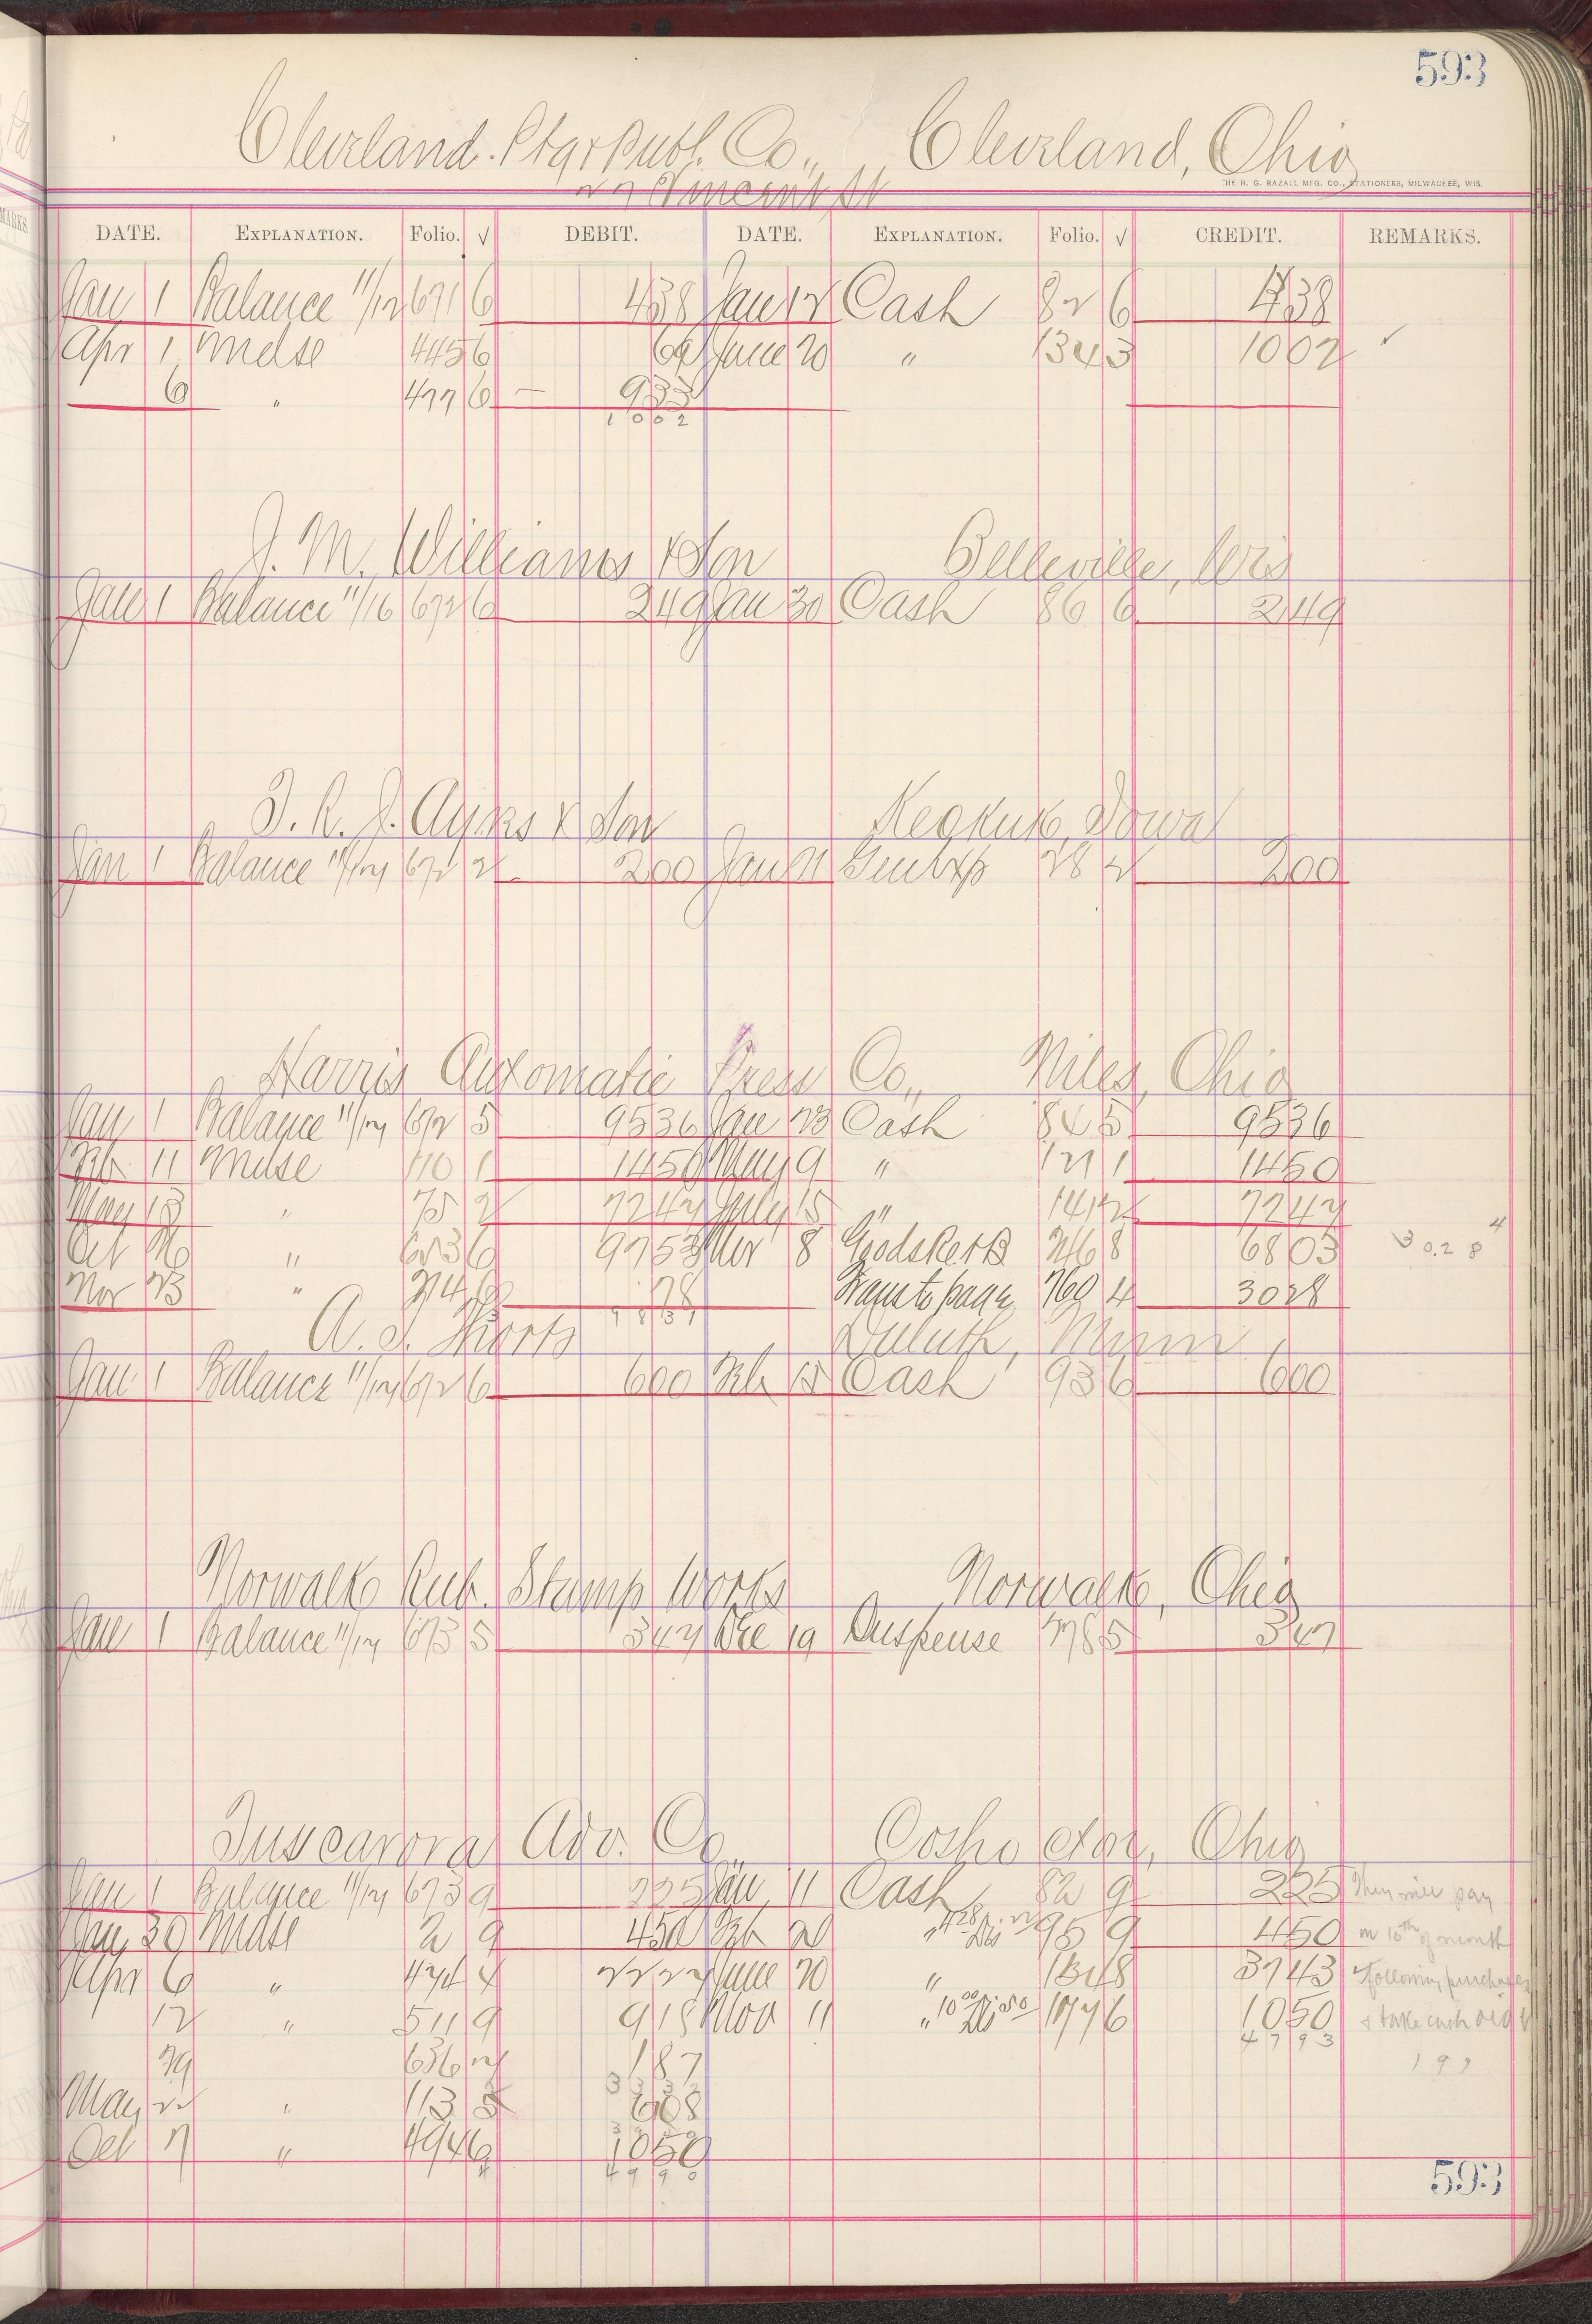 593
Cleveland. Ptg & Publ. Co., Cleveland, Ohio
THE H. G. RAZALL MFG. CO., STATIONERS, MILWAUKEE, WIS.
22 Vincent St
DATE. EXPLANATION. Folio. √ DEBIT. DATE. EXPLANATION. Folio. √ CREDIT. REMARKS.
Jan 1 Balance 11/12 671 6 438 Jan 12 Cash 82 6 438
Apr 1 Mdse 445 6 69 June 20 " 134 3 1002 ✓
6 " 477 6 933
1002
J. M. Williams & Son Belleville, Wis
Jan 1 Balance 11/16 672 6 249 Jan 30 Cash 86 6 249
T. R. J. Ayres & Son Keokuk, Iowa
Jan 1 Balance 11/24 672 2 200 Jan 21 Gen Exp 28 2 200
Harris Automatic Press Co., Niles, Ohio
Jan 1 Balance 11/24 672 5 9536 Jan 23 Cash 84 5 9536
Feb 11 Mdse 110 1 1450 May 9 " 121 1 1450
May 18 " 75 2 7247 July 15 " 141 2 7247
Oct 26 " 673 6 9753 Nov 8 Gods Retd 246 8 6803 3028 4
Nov 23 " 214 6 78 Trans to page 760 4 3028
9831
A. I. Shorts Duluth, Minn
Jan 1 Balance 11/24 672 6 600 Feb 15 Cash 93 6 600
Norwalk Rub. Stamp Works Norwalk, Ohio
Jan 1 Balance 11/24 673 5 347 Dec 19 Suspense 278 5 347
Tuscarora Adv. Co., Coshocton, Ohio
Jan 1 Balance 11/24 673 9 225 Jan 11 Cash 82 9 225 They will pay
Jan 30 Mdse 2 9 450 Feb 20 " 428 Dis 22 95 9 450 on 10th of month
Apr 6 " 474 4 2227 June 20 " 134 8 3743 following purchases
12 " 511 9 918 Nov 11 " 10 00 Dis 50 177 6 1050 & take cash disct
4793
29 636 2 187 197
333
May 22 " 113 3 608
Oct 7 " 494 6 1050
4990
593